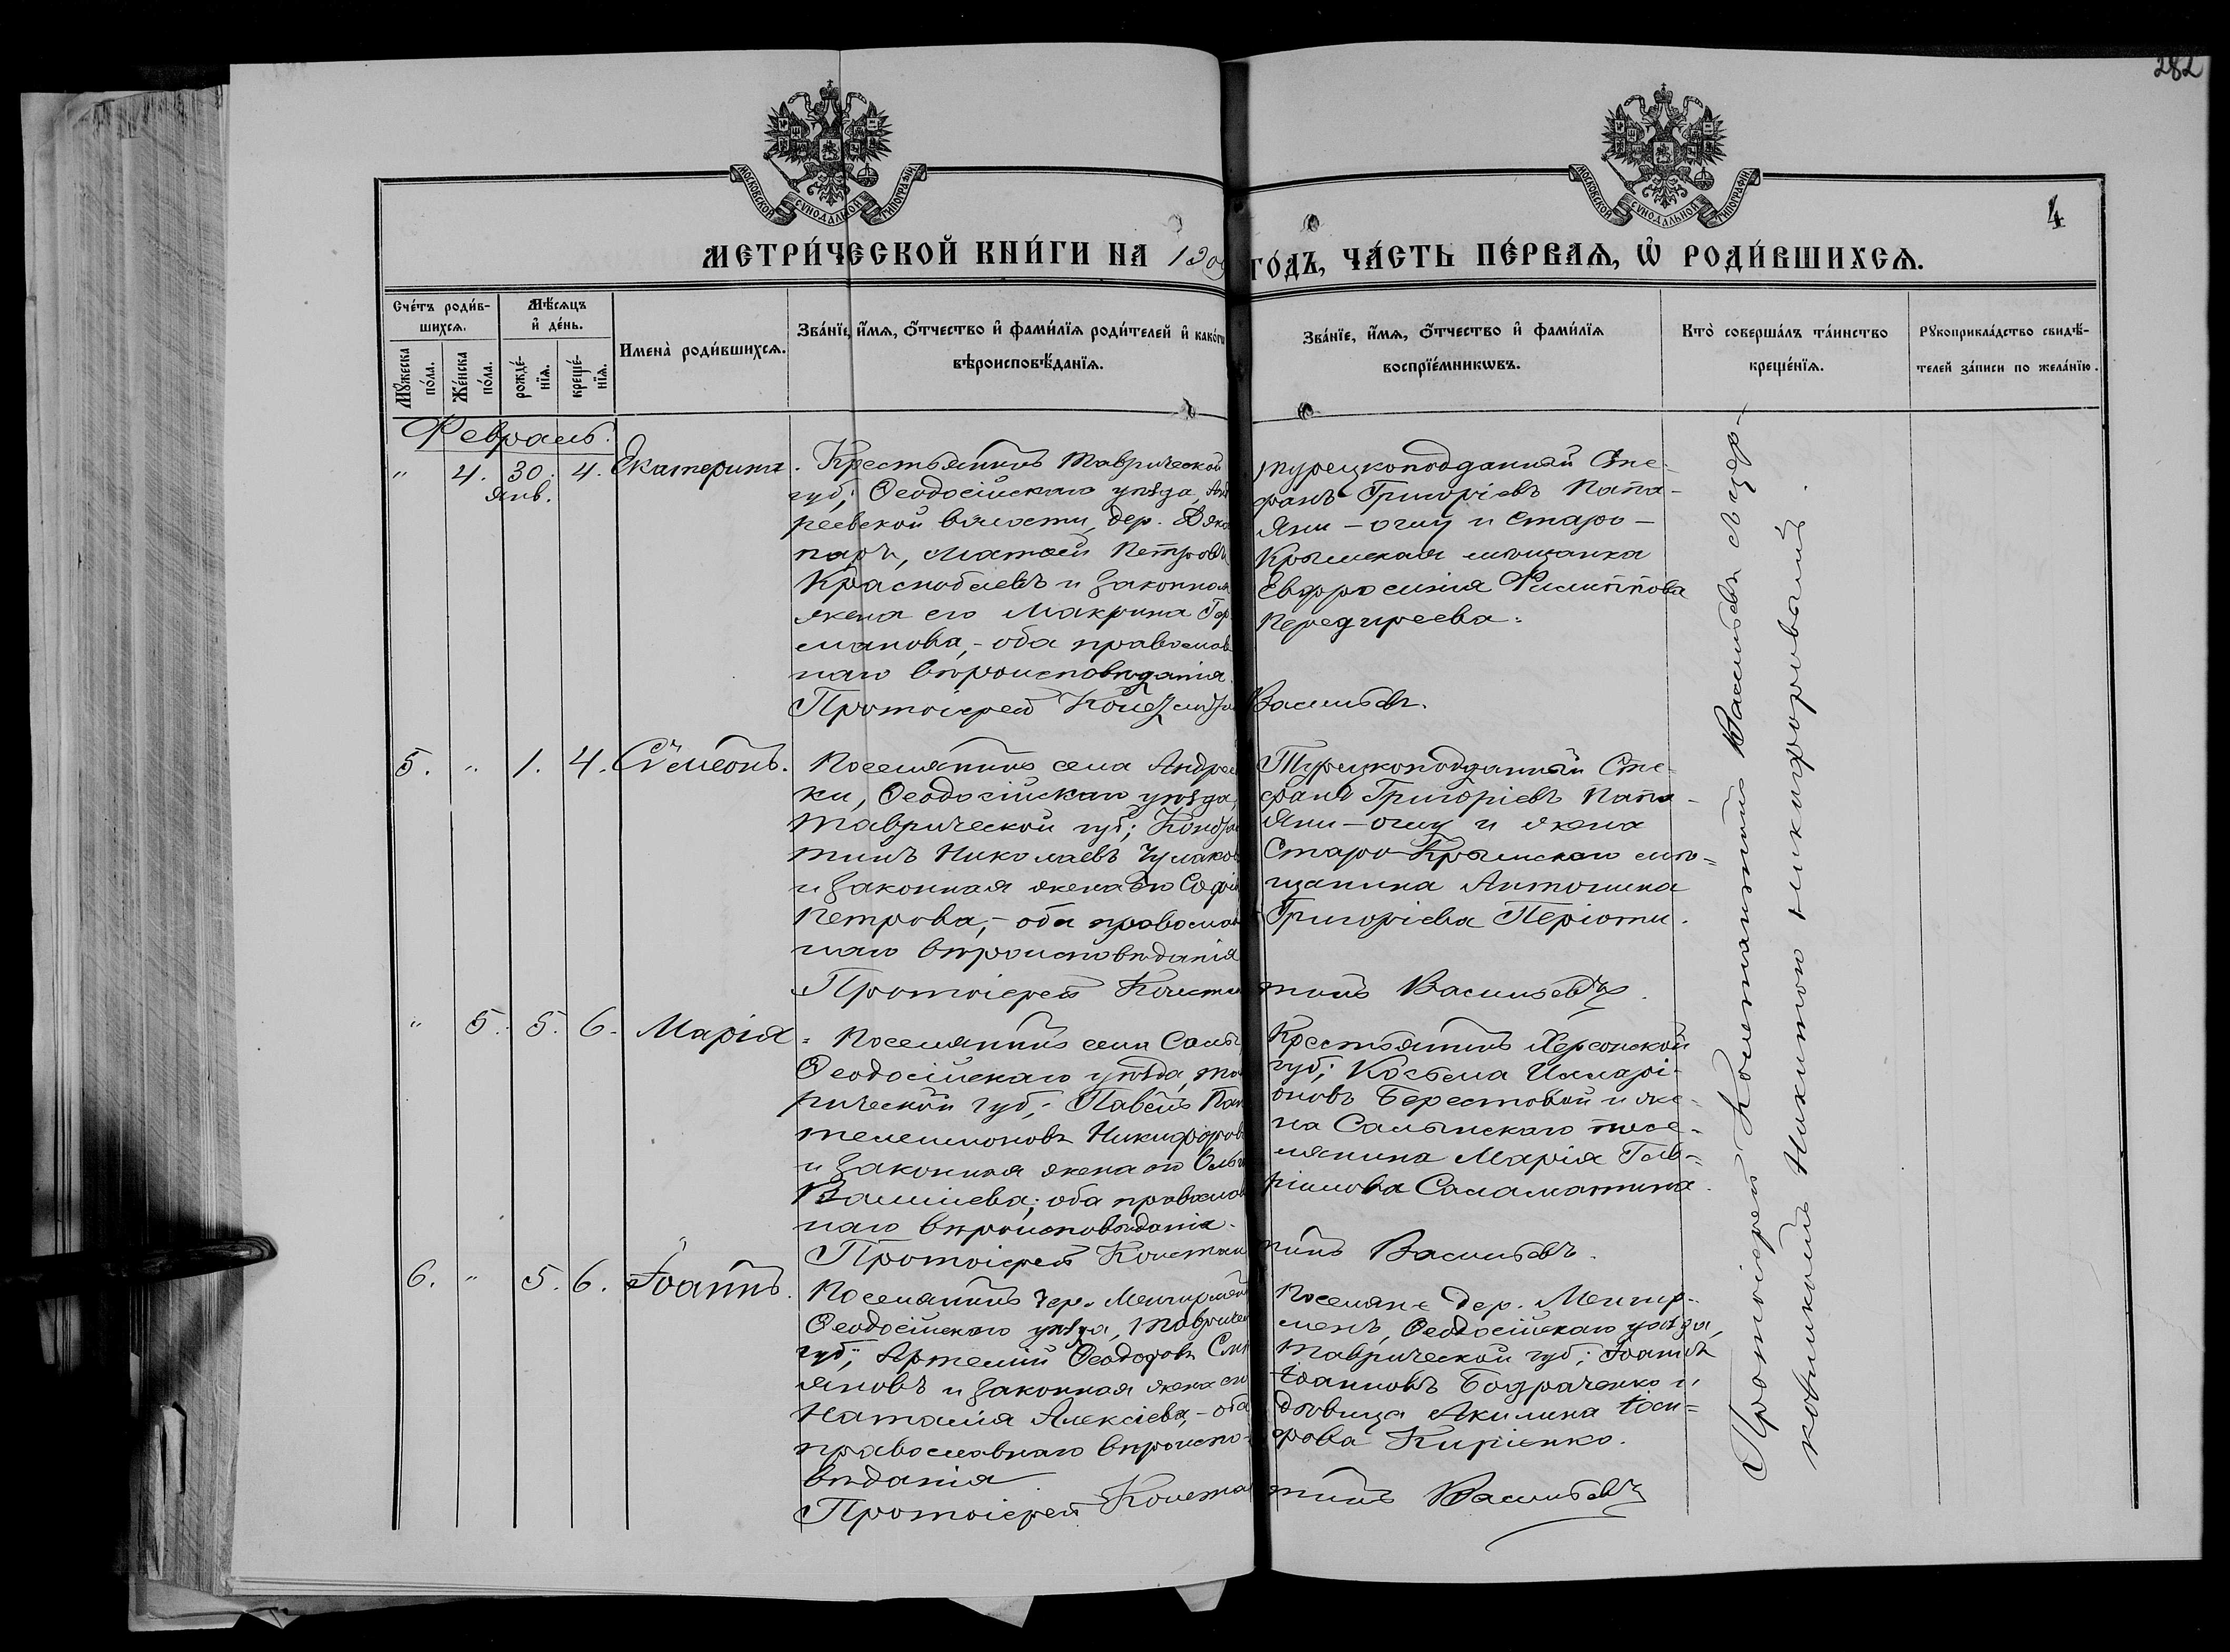 282
МОСКОВСКОЙ СѴНОДАЛЬНОЙ ТИПОГРАФІИ
МОСКОВСКОЙ СѴНОДАЛЬНОЙ ТИПОГРАФІИ
4
МЕТРИ́ЧЕСКОЙ КНИ́ГИ НА 190
ГО́ДЪ, ЧА́СТЬ ПЕ́РВАѦ, Ѡ҆ РОДИ́ВШИХСѦ.
Сче́тъ роди́в-
шихсѧ.
Мѣ́сѧцъ
и҆ де́нь.
Мꙋ́жеска
по́ла.
Же́нска
по́ла.
рожде́-
нїѧ.
креще́-
нїѧ.
Имена̀ роди́вшихсѧ.
Зва́нїе, и҆́мѧ, ѻ҆́тчество и҆ фами́лїѧ роди́телей и҆ како́гѡ
вѣроисповѣ́данїѧ.
Зва́нїе, и҆́мѧ, ѻ҆́тчество и҆ фами́лїѧ
воспрїе́мникѡвъ.
Кто̀ соверша́лъ та́инство
креще́нїѧ.
Рꙋкоприкла́дство свидѣ́-
телей за́писи по жела́нїю.
Февраль.
" 4. 30. 4. Екатерина.
Янв.
Крестьянинъ Таврической
губ; Ѳеодосійскаго уѣзда, Анд
реевской волости, дер.
паръ, Матѳей Петровъ
Краснобаевъ и законная
жена его Макрина Гер
манова, - оба православ
наго вѣроисповѣданія.
Протоіерей
турецкоподданный Сте-
фанъ Григоріевъ Папа-
Яни-оглу и Старо-
Крымская мѣщанка
Евфросинія Филиппова
Передиреева.
Васильевъ.
5. " 1. 4. Сѵмеонъ.
Поселянинъ села Андреев
ки, Ѳеодосійскаго уѣзда,
Таврической губ;
тинъ Николаевъ Чумаков
и законная жена его Софія
Петрова, - оба православ
наго вѣроисповѣданія
Протоіерей Констан
Турецкоподданный Сте-
фанъ Григоріевъ Папа-
Яни-оглу и жена
Старо-Крымскаго мѣ=
щанина Антонина
Григоріева Періоти.
тинъ Васильевъ.
" 5. 5. 6. Марія.
Поселянинъ села Салы,
Ѳеодосійскаго уѣзда, Тав
рической губ; Павелъ Пан
телеимоновъ Никифоров
и законная жена его Ольга
оба православ
наго вѣроисповѣданія.
Протоіерей Констан
Крестьянинъ Херсонской
губ; Косьма Иларі-
оновъ Берестовой и же-
на Салынскаго посе-
лянина Марія Гав-
ріилова Саламатина.
тинъ Васильевъ.
6. " 5. 6. Іоаннъ.
Поселянинъ дер.
Ѳеодосійскаго уѣзда, Тавричес
губ; Артемій Ѳеодоровъ
яновъ и законная жена его
Наталія Алексіева, - оба
православнаго вѣроиспо-
вѣданія
Протоіерей Констан
Поселяне дер.
менъ, Ѳеодосійскаго уѣзда,
Таврической губ; Іоаннъ
Іоанновъ Бодраченко и
вдовица Акилина Іоси=
фова Кирієнко.
тинъ Васильевъ
Протоіерей Константинъ Васильевъ съ цер-
ковникомъ Никитою Никифоровымъ.